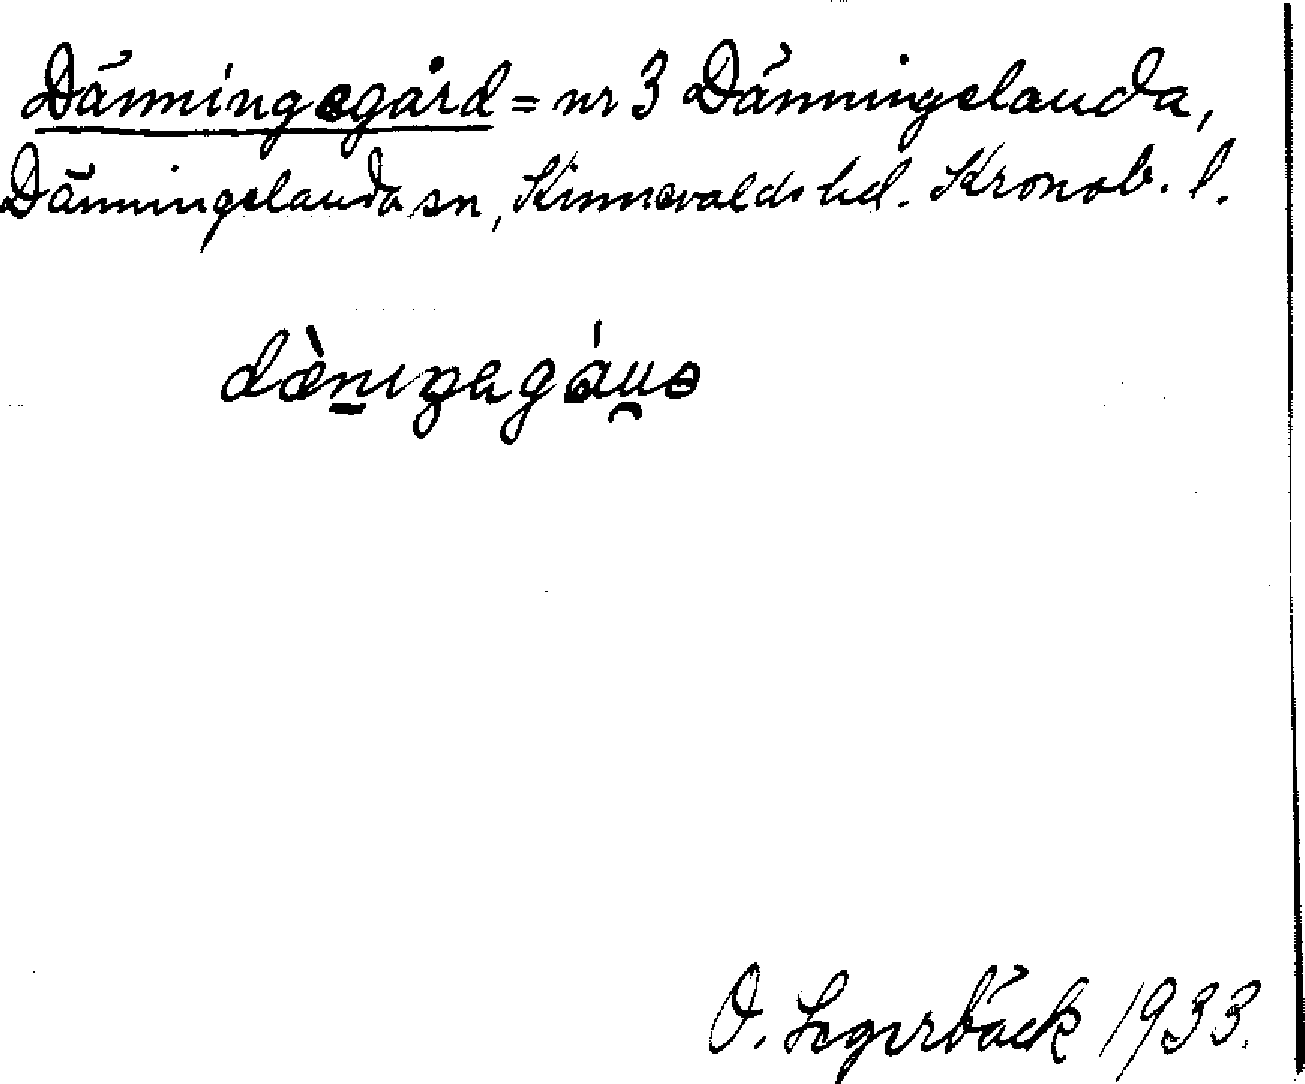 Dänningegård = nr 3 Dänningelanda,
Dänningelanda sn, Kinnevalds hd. Kronob. l.
O. Lagerbäck 1933.